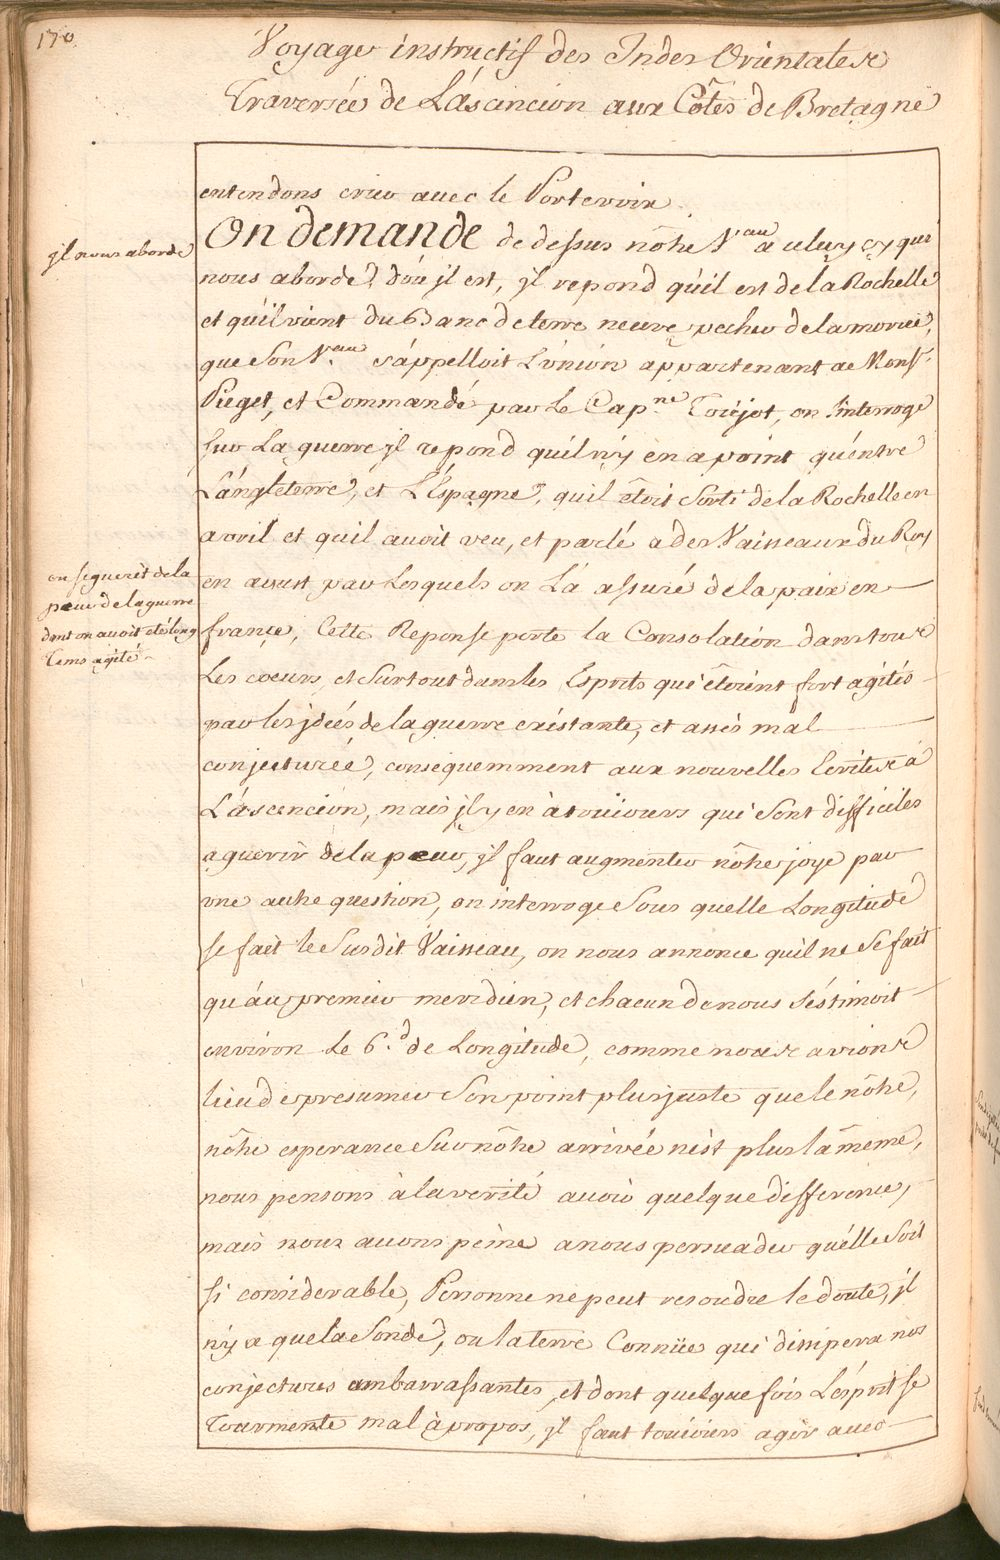 170.
Voyage instructif des Indes Orientales
Traversée de L'áscencion aux Côtes de Bretagne
entendons crier avec le Portevoix.
jl nous aborde
On demande de dessus nôtre V.eau a celuy cy qui
nous aborde, d'óu jl est, jl repond qu'il est de la Rochelle
et qu'il vient du Banc de terre neuve pecher de la morue,
que Son V.eau s'áppelloit L'únion appartenant a Mons.r
Pieget, et Commandé par Le Cap.ne Toujot, on l'interroge
sur La guerre jl repond qu'il n'y en a point qu'éntre
L'ángleterre, et L'Espagne, qu'il êtoit Sorti de la Rochelle en
avril et qu'il avoit veu, et parlé a des Vaisseaux du Roy
en aoust par Lesquels on L'a assuré de la paix en
on se guerit de la
peur de la guerre
dont on avoit eté long
tems agité
france, Cette Reponse porte la Consolation dans tous
Les coeurs, et Surtout dans les Esprits qui êtoient fort agités
par les jdées de la guerre existante, et assés mal
conjecturée, consequemment aux nouvelles Ecrites à
L'áscencion, mais jl y en à toûiours qui Sont difficiles
a guerir de la peur, jl faut augmenter nôtre joye par
une autre question, on interroge Sous quelle Longitude
se fait le Susdit Vaisseau, on nous annonce qu'il ne Se fait
qu'áu premier meridien, et chacun de nous S'éstimoit
environ Le 6.d de Longitude, comme nous avions
lieu de presumer Son point plus juste que le nôtre,
nôtre esperance Sur nôtre arrivée n'est plus la mème,
nous pensons à la verité avoir quelque difference,
mais nous avons peine a nous persuader qu'élle Soit
si considerable, Personne ne peut resoudre le doute, jl
n'y a que la Sonde, ou la terre Connüe qui dissipera nos
conjectures embarrassantes, et dont quelque fois L'esprit se
Tourmente mal à propos, jl faut toûiours agir avec